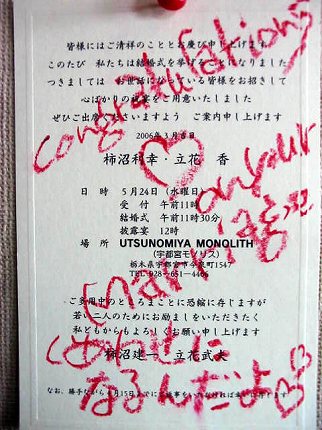 皆様にはご清祥のこととお慶び申し上げます
このたび 私たちは結婚式を挙げることになりました
つきましては お世話になっている皆様をお招きして
心ばかりの祝宴をご用意いたしました
ぜひご出席くださいますよう ご案内申し上げます
2006年3月吉日
柿沼利幸・立花 香
日 時 5月24日(水曜日)
受 付 午前11時
結婚式 午前11時30分
披露宴 12時
場 所 UTSUNOMIYA MONOLITH
(宇都宮モノリス)
栃木県宇都宮市今泉町1547
TEL 028-651-4466
ご多用中のところまことに恐縮に存じますが
若い二人のためにお励ましをいただきたく
私どもからもよろしくお願い申し上げます
柿沼建一 立花武夫
なお、勝手ながら4月15日までに
congratulations
on your
marriage
しあわせに
なるんだよ